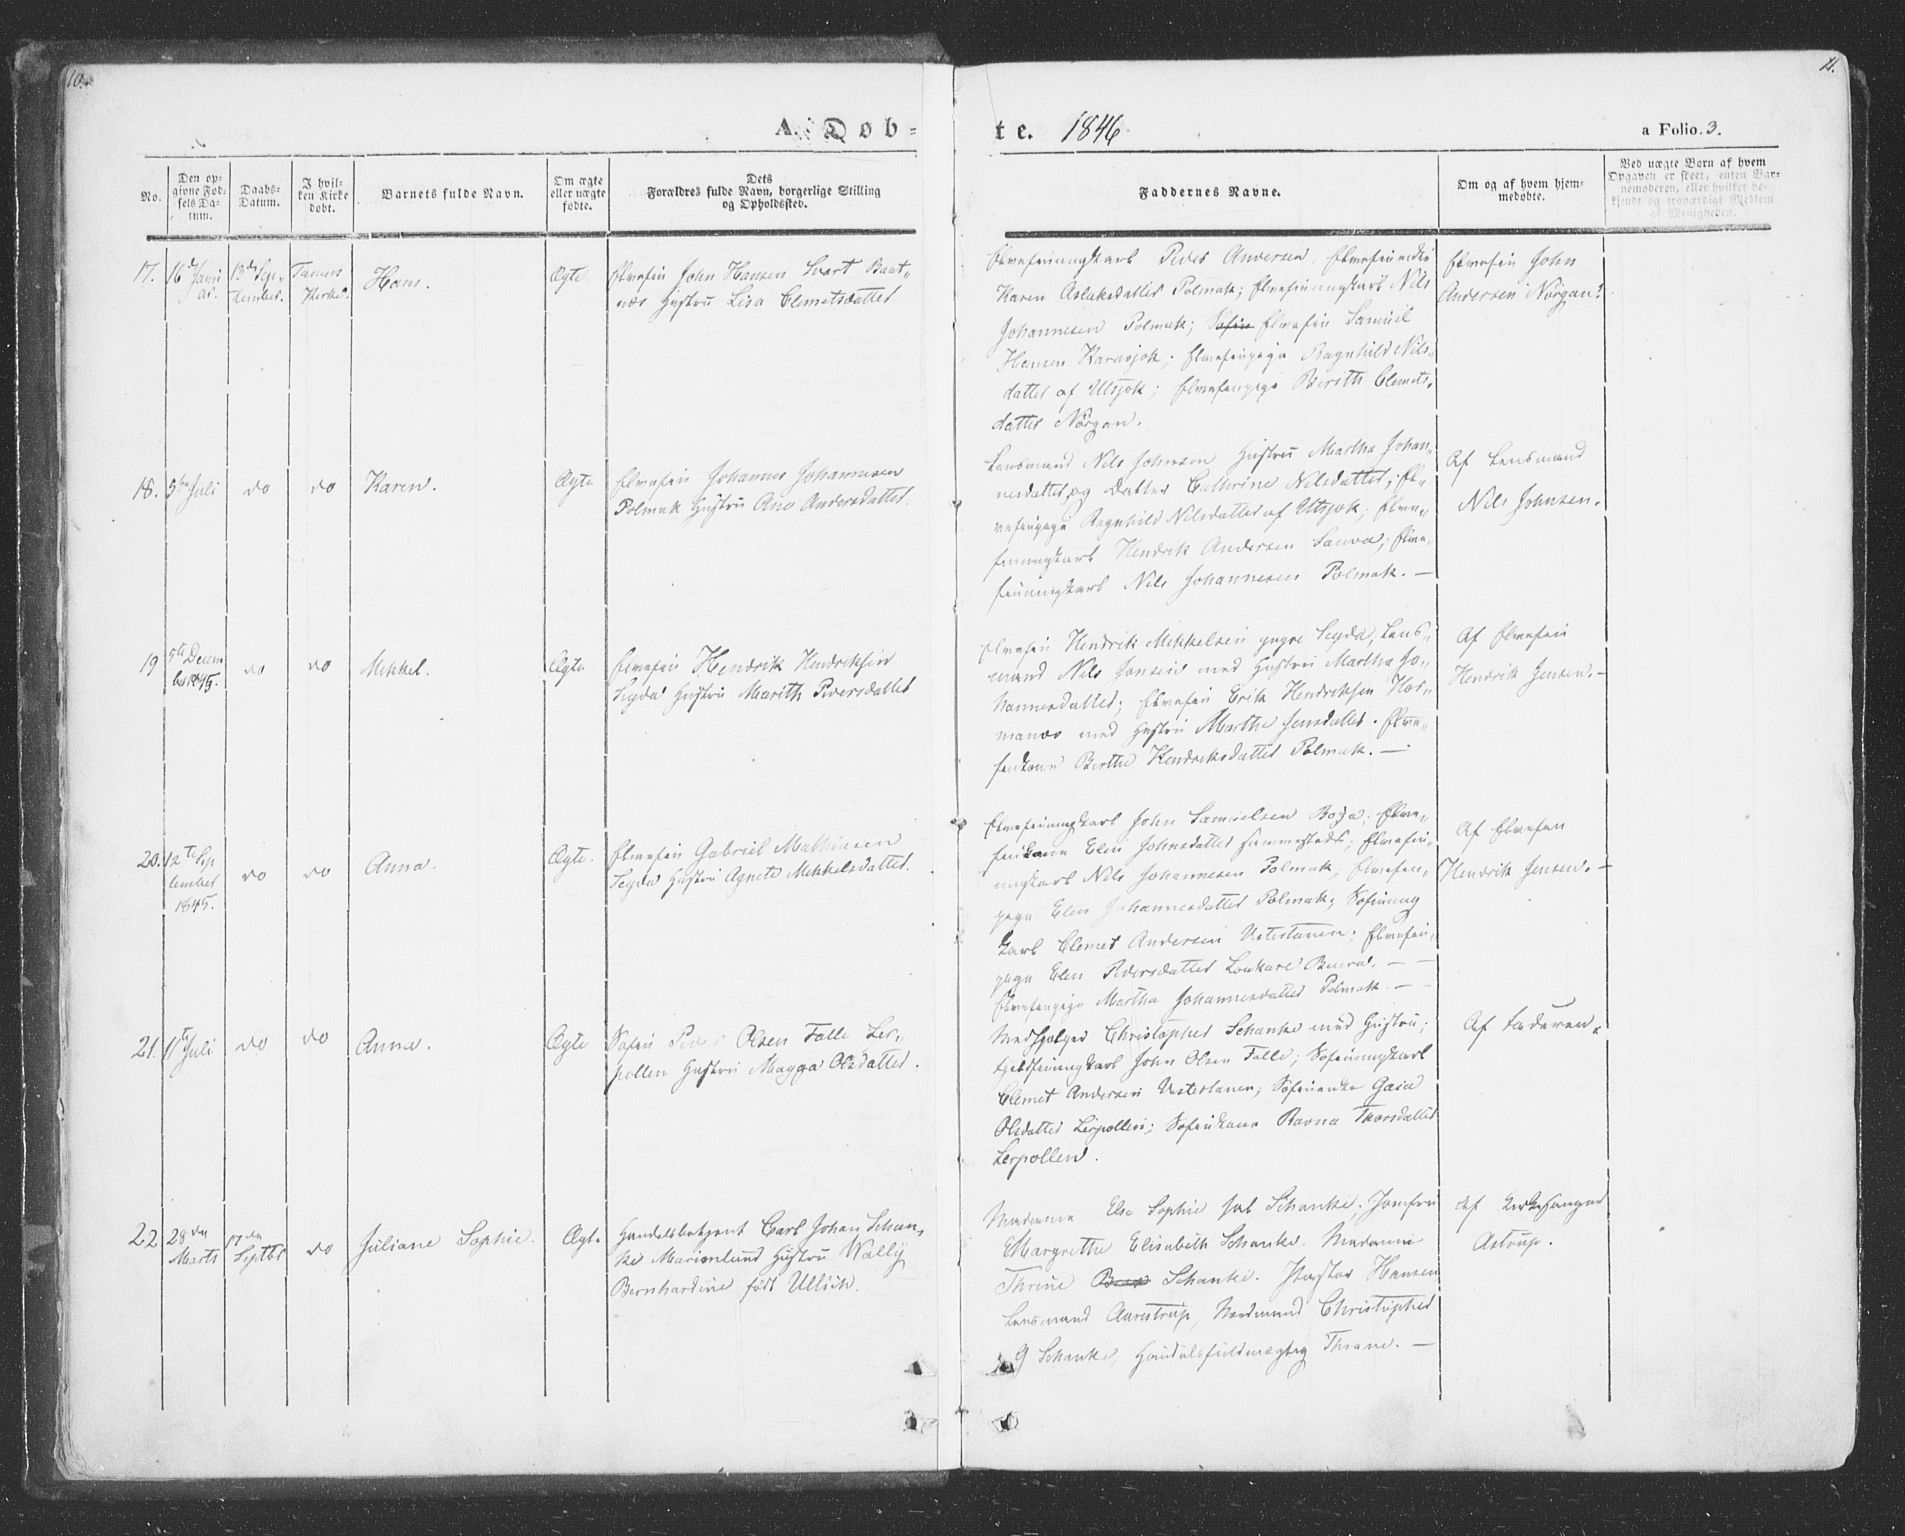 10.
11.
A. Døb-
te. 1846.
a Folio. 3.
No.
Den op-
givne Fød-
sels Da-
tum.
Daabs-
Datum.
I hvil-
ken Kirke
døbt.
Barnets fulde Navn.
Om ægte
eller uægte
fødte.
Dets
Forældres fulde Navn, borgerlige Stilling
og Opholdssted.
Faddernes Navne.
Om og af hvem hjem-
medøbte.
Ved uægte Børn af hvem
Opgaven er skeet, enten Bar-
nemoderen, eller hvilket be-
kjendt og troværdigt Medlem
af Menigheden.
17. 16de Janu
ar.
13de Sep-
tember.
Tanens
Kirke.
Hans.
Ægte.
Elvefin John Hansen Svart Baat-
næs Hustru Lisa Clemetsdatter
Elvefinungkarl Peder Andersen, Elvefinenke
Karen Aslaksdatter Polmak; Elvefinungkarl Nils
Johannesen Polmak; Søfin Elvefin Samuel
Hansen Karasjok; Elvefinpige Ragnhild Nils-
datter af Utsjok; Elvefinpige Bereth Clemets-
datter Nørgan.
Elvefin John
Andersen Nørgan.
18. 5te Juli
do
do
Karen.
Ægte
Elvefin Johannes Johannesen
Polmak Hustru Ane Andersdatter.
Lensmand Nils Johnsen Hustru Martha Johan-
nesdatter og Datter Cathrine Nilsdatter; El-
vefinpige Ragnhild Nilsdatter af Utsjok; Elve-
finungkarl Hendrik Andersen; Elve-
finungkarl Nils Johannesen Polmak. —
Af Lensmand
Nils Johnsen.
19 5te Decem
ber 1845.
do
do
Mikkel.
Ægte
Elvefin Hendrik Hendriksen
Seyda Hustru Marith Pedersdatter
Elvefin Hendrik Mikkelsen Seyda, Lens-
mand Nils Jonsen med Hustru Martha Jo-
hannesdatter; Elvefin Erik Hendriksen Hor-
manæs med Hustru Marthe Jensdatter. Elve-
finkone Birthe Hendriksdatter Polmak. —
Af Elvefin
Hendrik Jensen. —
20. 12te Sep
tember
1845.
do
do
Anna.
Ægte.
Elvefin Gabriel Mathiesen
Seyda Hustru Agnete Mikkelsdatter.
Elvefinungkarl John Samuelsen; Elve-
finkone Elen Johnsdatter sammesteds; Elvefin-
ungkarl Nils Johannesen Polmak; Elvefin-
pige Elen Johannesdatter Polmak; Søfinung
karl Clemet Andersen Vestertanen; Elvefin-
pige Elen Pedersdatter. —
Elvefinpige Martha Johannesdatter Polmak. —
Af Elvefin
Hendrik Jensen. —
21. 11te Juli
do
do
Anna.
Ægte
Søfin Peder Olsen Falle Ler-
pollen Hustru Magga Olsdatter.
Christopher Schanke med Hustru;
Fjeldfinungkarl John Olsen Falle; Søfinungkarl
Clemet Andersen Vestertanen; Søfinenke
Olsdatter Lerpollen; Søfinkone Ravna Thorsdatter
Lerpollen.
Af Faderen.
22 28de
Marts
17de
Septbr
do
Juliane Sophie.
Ægte
Handelsbetjent Carl Johan Schan-
ke Marienlund Hustru Wally
Bernhardine født Ullich.
Madamme Else Sophie født Schanke; Jomfru
Margrethe Elisabeth Schanke. Madame
Thrine Schanke. Pastor Hansen
Lensmand Aarestrup, Nordmand Christopher
G Schanke, Handelsfuldmægtig Thrane. —
Af Kirkesanger
Astrup.